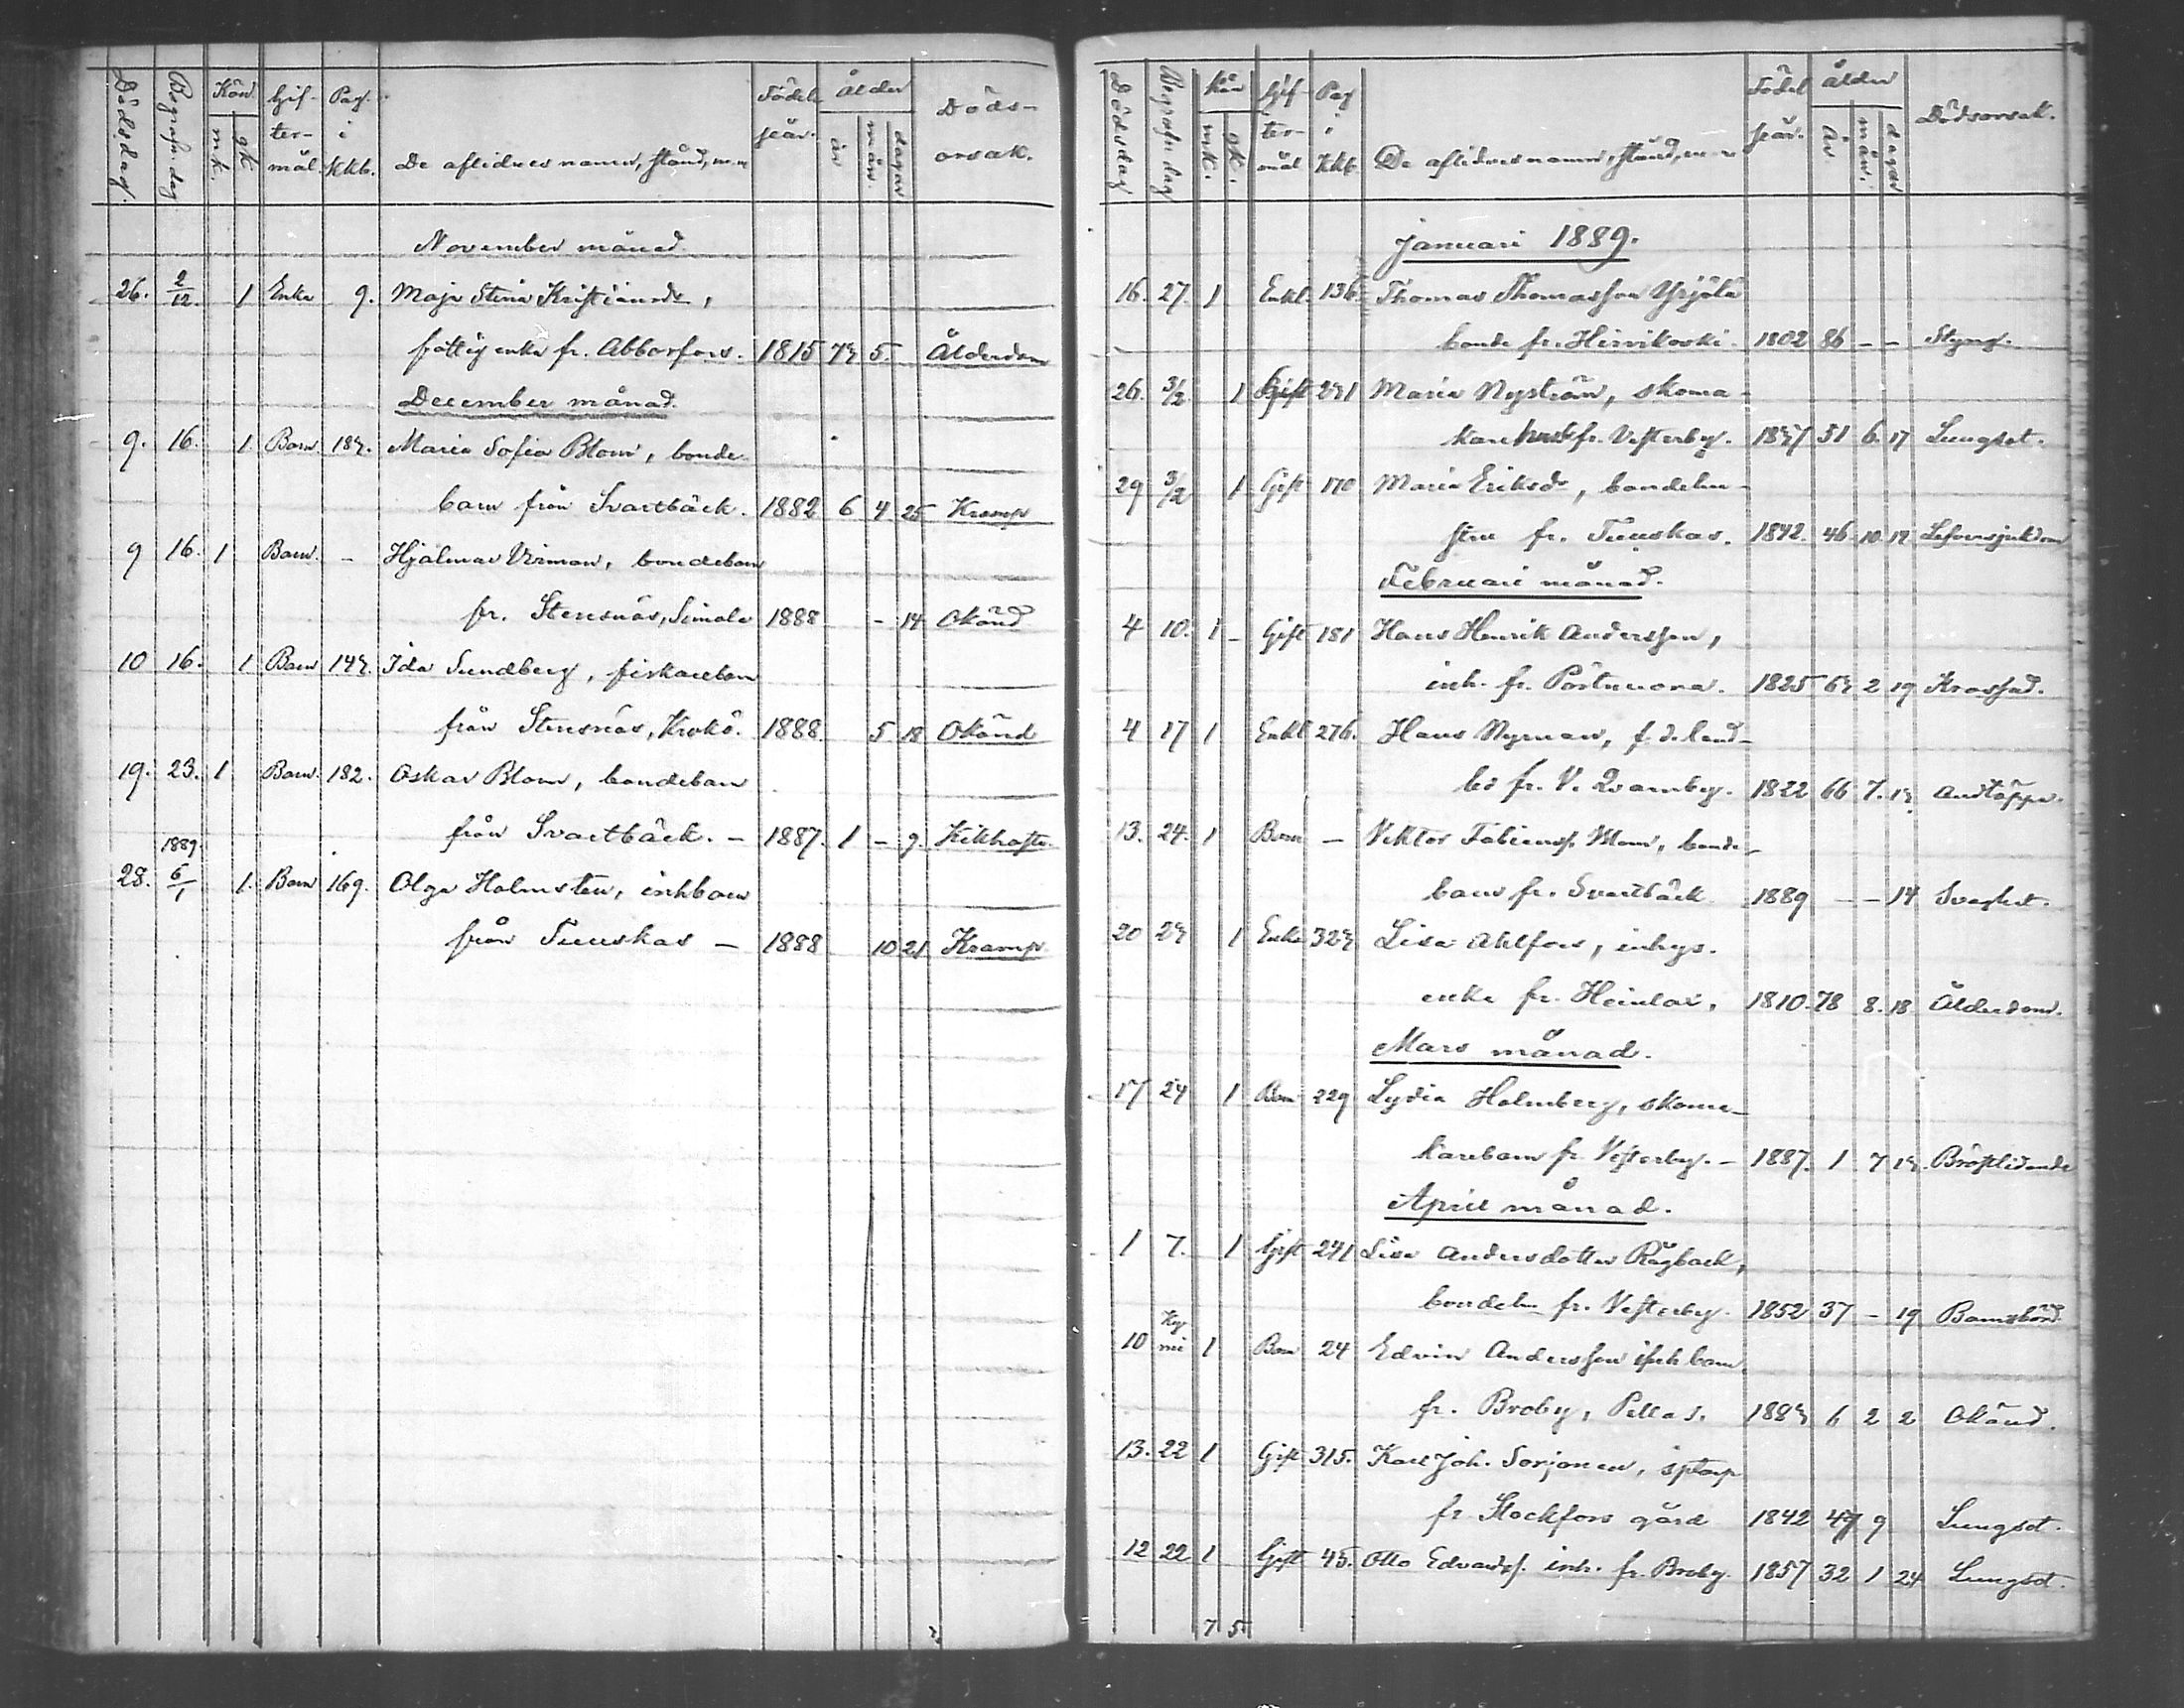 Dödsdag. Begrafn. dag Kön. mk. qk. Gif-ter-mål. Pag. i Kkb. De aflidnes namn, stånd, m.m Födelseår. Ålder år mån. dagar Döds-orsak.
November månad.
26. 2/12. 1 Enka 9. Maja Stina Kristiansdr,
fattig enka fr. Abborfors. 1815 73 5. Ålderdom
December månad.
9. 16. 1. Barn. 182. Maria Sofia Blom, bonde
barn från Svartbäck. 1882 6 4 25 Kramp
9 16. 1 Barn. - Hjalmar Virman, bondebarn
fr. Stensnäs, Simola 1888 - 14 Okänd
10 16. 1 Barn 143. Ida Sundberg, fiskarebarn
från Stensnäs, Krokö. 1888. 5 18 Okänd
19. 23. 1 Barn. 182. Oskar Blom, bondebarn
från Svartbäck. - 1887. 1 - 9. Kikhosta.
28. 1889. 6/1 1. Barn 169. Olga Holmsten, inhbarn
från Tuuskas - 1888 10 21 Kramp
Dödsdag Begrafn. dag Kön mk. qk. Gif-ter-mål Pag i Kkb. De aflidnes namn, stånd, m.m Födelseår. Ålder År mån. dagar Dödsorsak.
Januari 1889.
16. 27. 1 Enkl. 136. Thomas Thomasson Yrjölä
bonde fr. Hirvikoski. 1802 86 - - Styng.
26. 3/2. 1 Gift 231 Maria Nyström, skoma-
kare fr. Vesterby. 1837 51 6. 17 Lungsot.
29 3/2 1 Gift 170 Maria Eriksdr, bondehu-
stru fr. Tuuskas. 1842. 46. 10. 12 Lefversjukdom
Februari månad.
4 10. 1 - Gift 181 Hans Henrik Andersson,
inh. fr. Pörtnuora. 1825 63 2 19 Krossad.
4 17 1 Enkl 276. Hans Nyman, f.d. land-
bo fr. V. Qvarnby. 1822 66 7. 13 Andtäppa.
13. 24. 1 Barn - Viktor Fabianss. Blom, bonde-
barn fr. Svartbäck 1889 - - 14 Svaghet.
20 23 1 Enka 323 Lisa Ahlfors, inhys.
enka fr. Heinlax, 1810. 78 8. 18 Ålderdom.
Mars månad.
17 24 1 Barn 229 Lydia Holmberg, skoma-
karebarn fr. Vesterby. - 1887. 1 7 13. Bröstlidande
April månad.
1 7. 1 Gift 241 Lisa Andersdotter Rågback,
bondeh. fr. Vesterby. 1852 37 - 19 Barnsbörd.
10 Kymi 1 Barn 24 Edvin Andersson inh barn
fr. Broby, Pellas. 1883 6 2 2 Okänd.
13. 22 1 Gift 315. Karl Joh. Sorjonen, sptorp
fr Stockfors gård 1842 47 9 Lungsot.
12 22 1 Gift 45. Otto Edvardss. inh. fr. Broby. 1857 32 1 24 Lungsot.
7 5